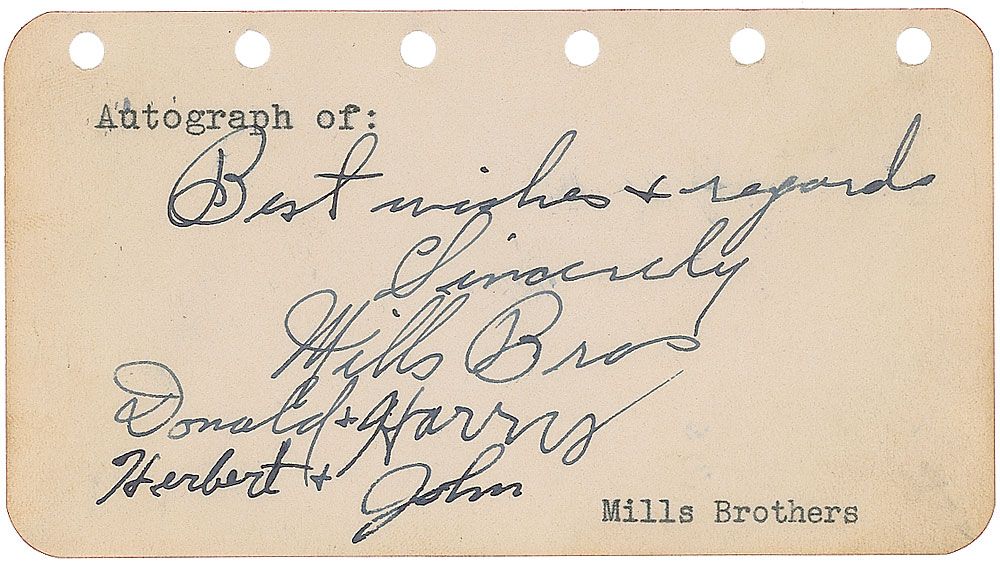 Autograph of:
Best wishes + regards
Sincerely
Mills Bros
Donald + Harry
Herbert + John
Mills Brothers